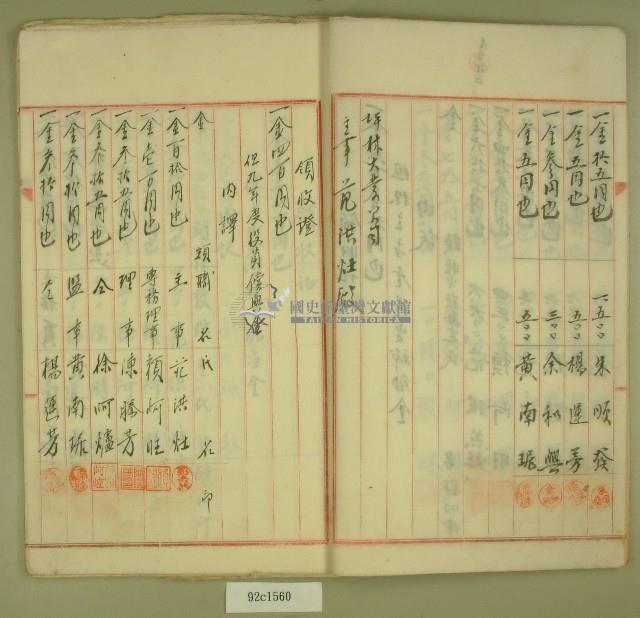 一金拾五円也 一五〇〇 朱順發
一金五円也 五〇〇 楊運芳
一金參円也 三〇〇 余和興
一金五円也 五〇〇 黃南琚
坪林大
主事 范洪灶
領收證
一金四百円也
但九年度役員
內譯
金 額 職 名 氏 名 印
一金百拾円也 主事 范洪灶
一金壱百円也 專務理事 賴阿旺
一金參拾五円也 理事 陳勝芳
一金參拾五円也 仝 徐阿爐
一金參拾円也 監事 黃南琚
一金參拾円也 仝 楊運芳
國史館臺灣文獻館
TAIWAN HISTORICA
92c1560